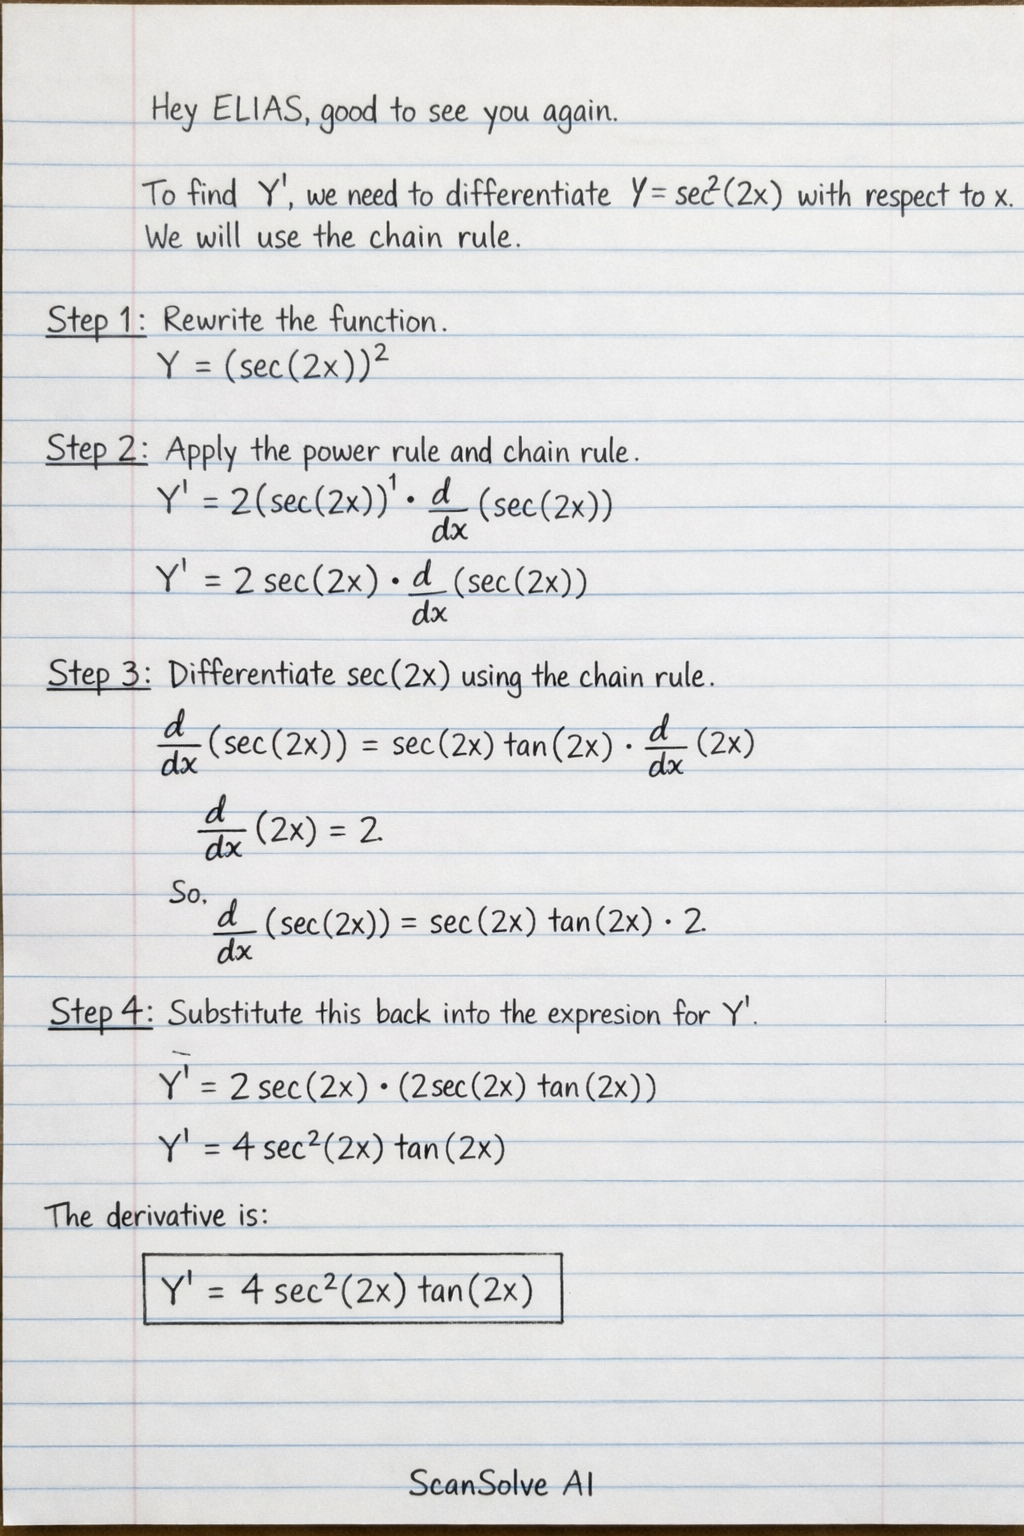 Hey ELIAS, good to see you again.
To find Y', we need to differentiate Y = sec²(2x) with respect to x.
We will use the chain rule.
Step 1: Rewrite the function.
Y = (sec(2x))²
Step 2: Apply the power rule and chain rule.
Y' = 2(sec(2x))¹ · d/dx (sec(2x))
Y' = 2 sec(2x) · d/dx (sec(2x))
Step 3: Differentiate sec(2x) using the chain rule.
d/dx (sec(2x)) = sec(2x) tan(2x) · d/dx (2x)
d/dx (2x) = 2.
So,
d/dx (sec(2x)) = sec(2x) tan(2x) · 2.
Step 4: Substitute this back into the expresion for Y'.
Y' = 2 sec(2x) · (2sec(2x) tan(2x))
Y' = 4 sec²(2x) tan(2x)
The derivative is:
Y' = 4 sec²(2x) tan(2x)
ScanSolve AI